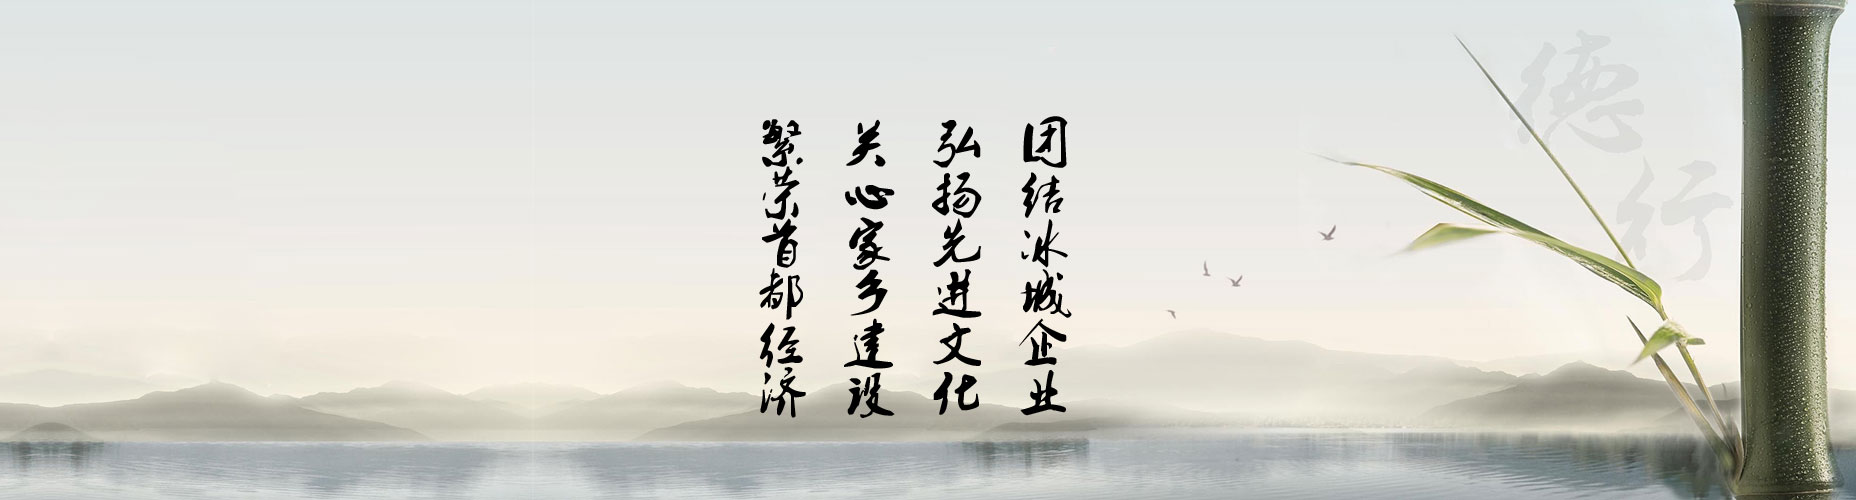 团结冰城企业
弘扬先进文化
关心家乡建设
繁荣首都经济
德行